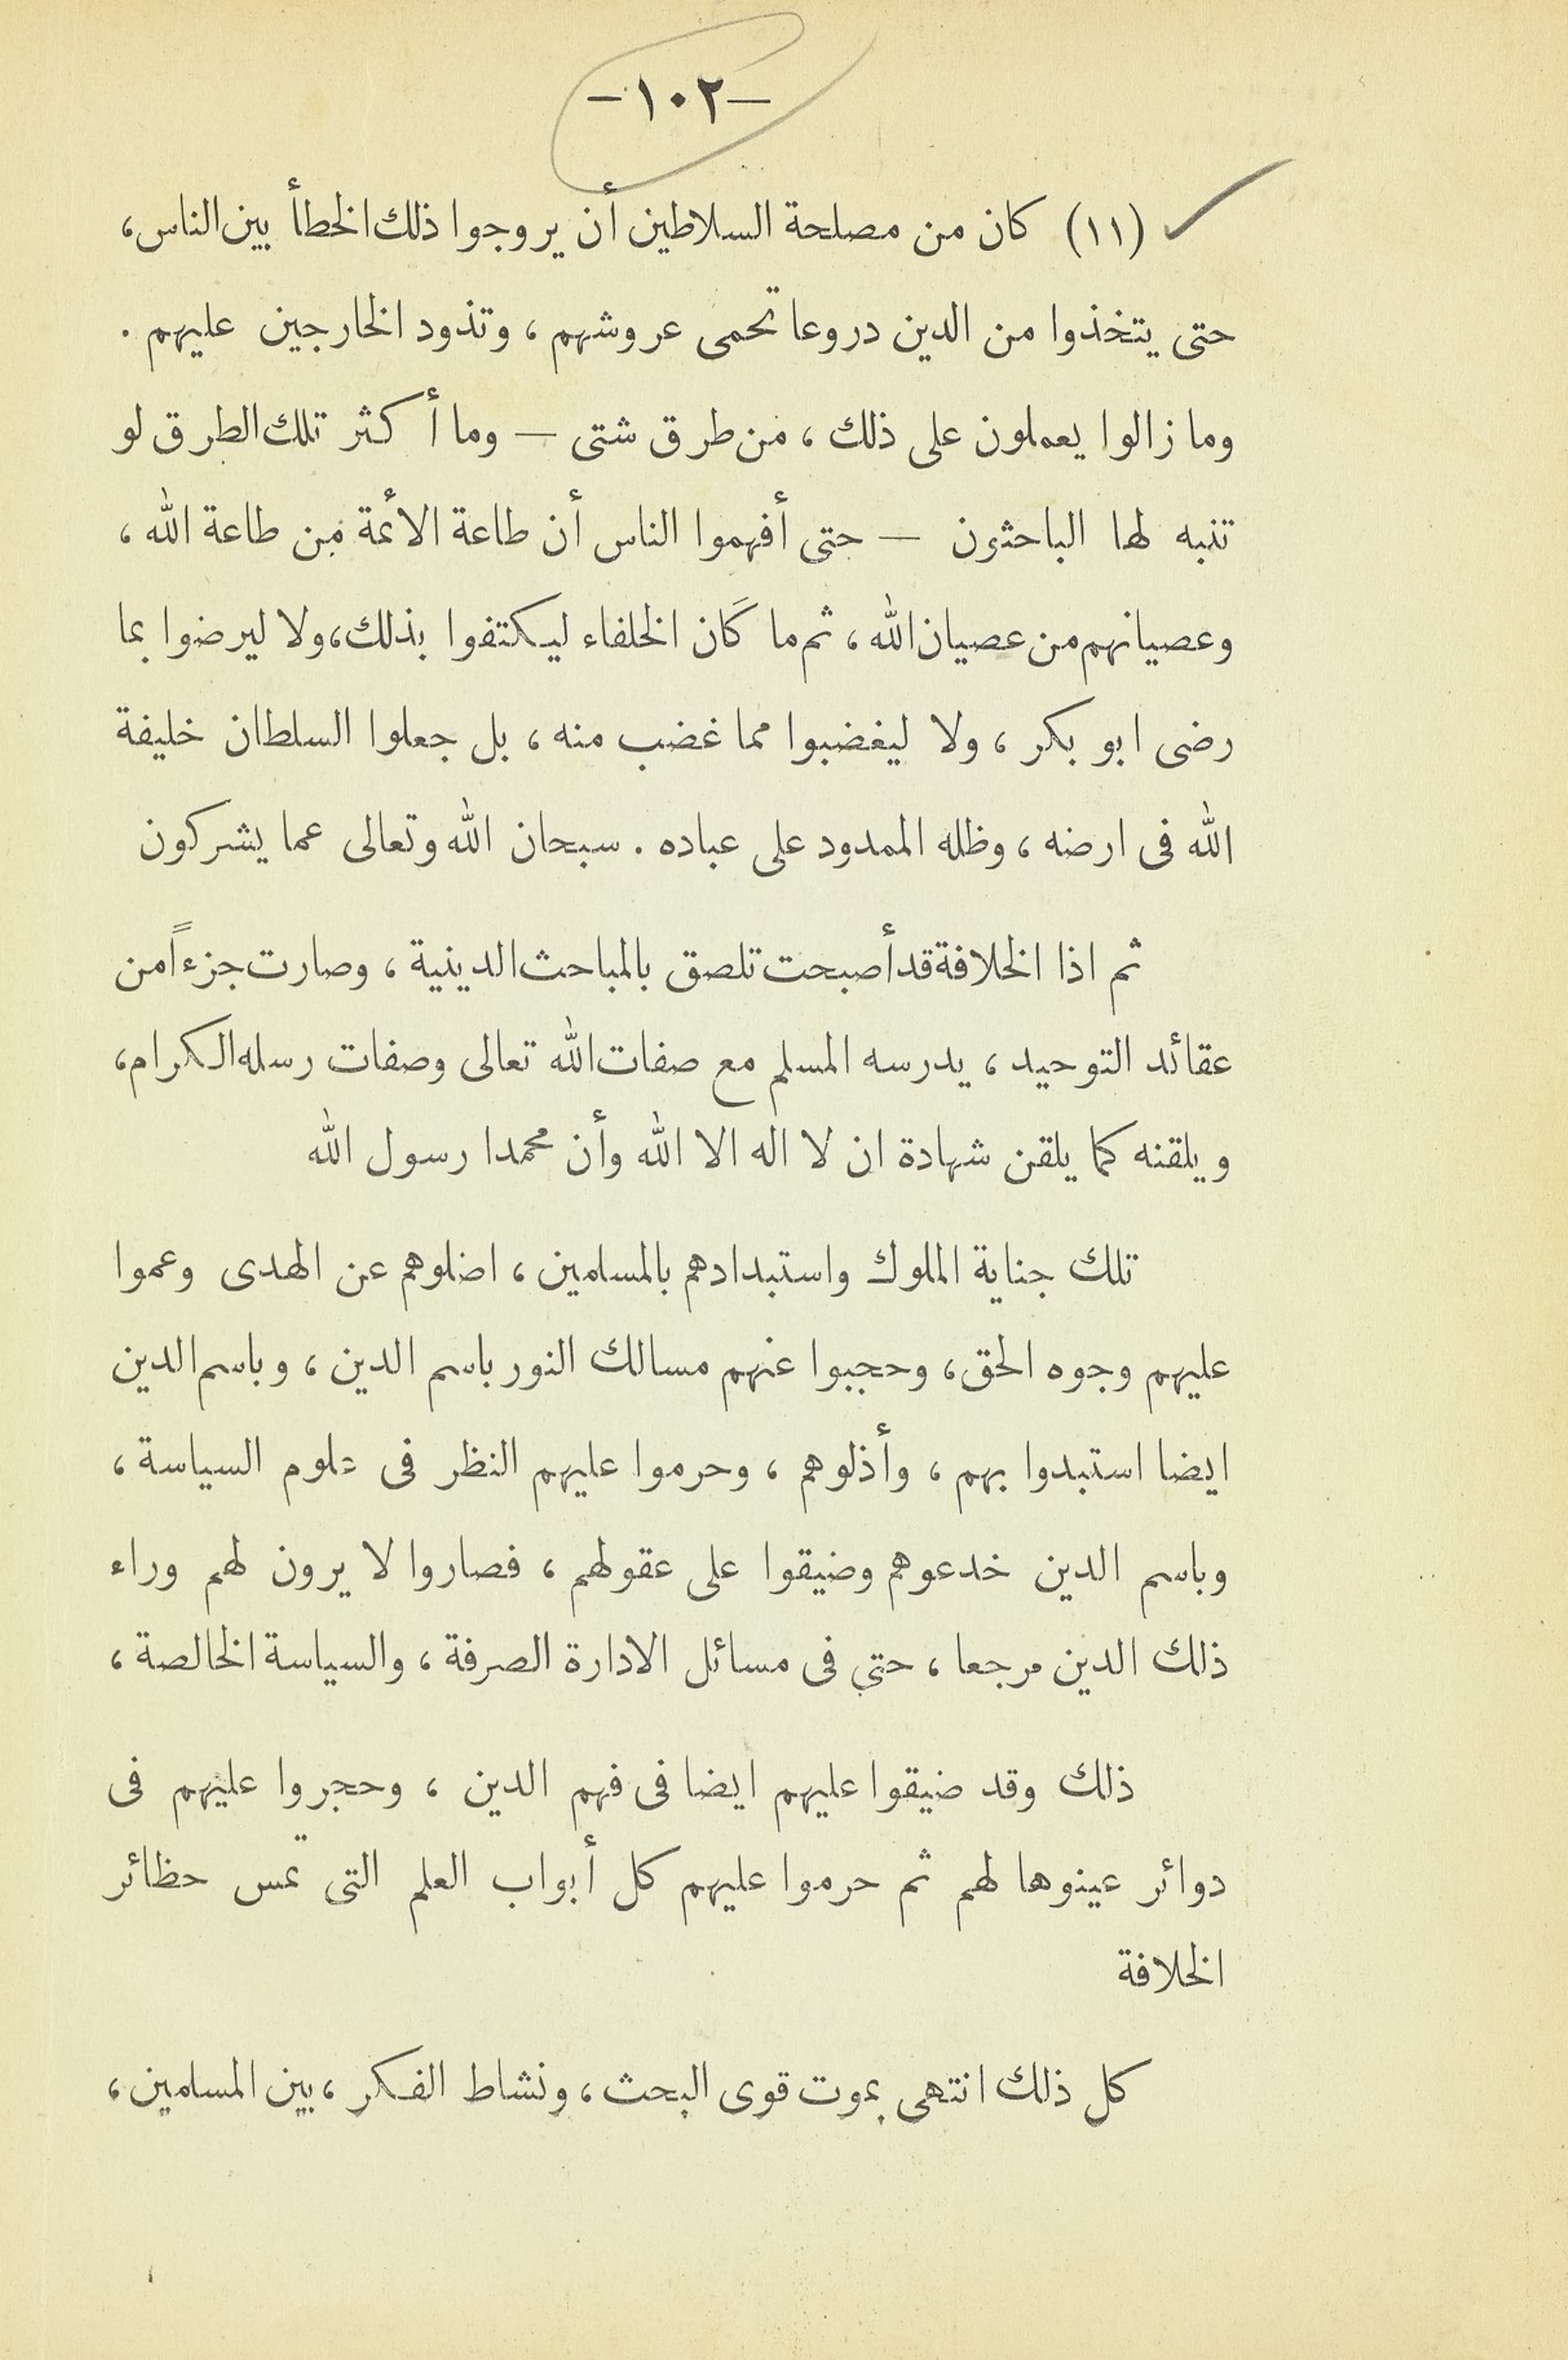 -١٠٢-
(١١) كان من مصلحة السلاطين أن يروجوا ذلك الخطأ بين الناس،
حتى يتخذوا من الدين دروعا تحمى عروشهم، وتذود الخارجين عليهم.
وما زالوا يعملون على ذلك، من طرق شتى — وما أكثر تلك الطرق لو
تنبه لها الباحثون — حتى أفهموا الناس أن طاعة الأئمة من طاعة الله،
وعصيانهم من عصيان الله، ثم ما كَان الخلفاء ليكتفوا بذلك، ولا ليرضوا بما
رضى ابو بكر، ولا ليغضبوا مما غضب منه، بل جعلوا السلطان خليفة
الله فى ارضه، وظله الممدود على عباده. سبحان الله وتعالى عما يشركون
ثم اذا الخلافة قد أصبحت تلصق بالمباحث الدينية، وصارت جزءاً من
عقائد التوحيد، يدرسه المسلم مع صفات الله تعالى وصفات رسله الكرام،
ويلقنه كما يلقن شهادة ان لا اله الا الله وأن محمدا رسول الله
تلك جناية الملوك واستبدادهم بالمسلمين، اضلوهم عن الهدى وعموا
عليهم وجوه الحق، وحجبوا عنهم مسالك النور باسم الدين، وباسم الدين
ايضا استبدوا بهم، وأذلوهم، وحرموا عليهم النظر فى علوم السياسة،
وباسم الدين خدعوهم وضيقوا على عقولهم، فصاروا لا يرون لهم وراء
ذلك الدين مرجعا، حتى فى مسائل الادارة الصرفة، والسياسة الخالصة،
ذلك وقد ضيقوا عليهم ايضا فى فهم الدين، وحجروا عليهم فى
دوائر عينوها لهم ثم حرموا عليهم كل أبواب العلم التى تمس حظائر
الخلافة
كل ذلك انتهى بموت قوى البحث، ونشاط الفكر، بين المسلمين،